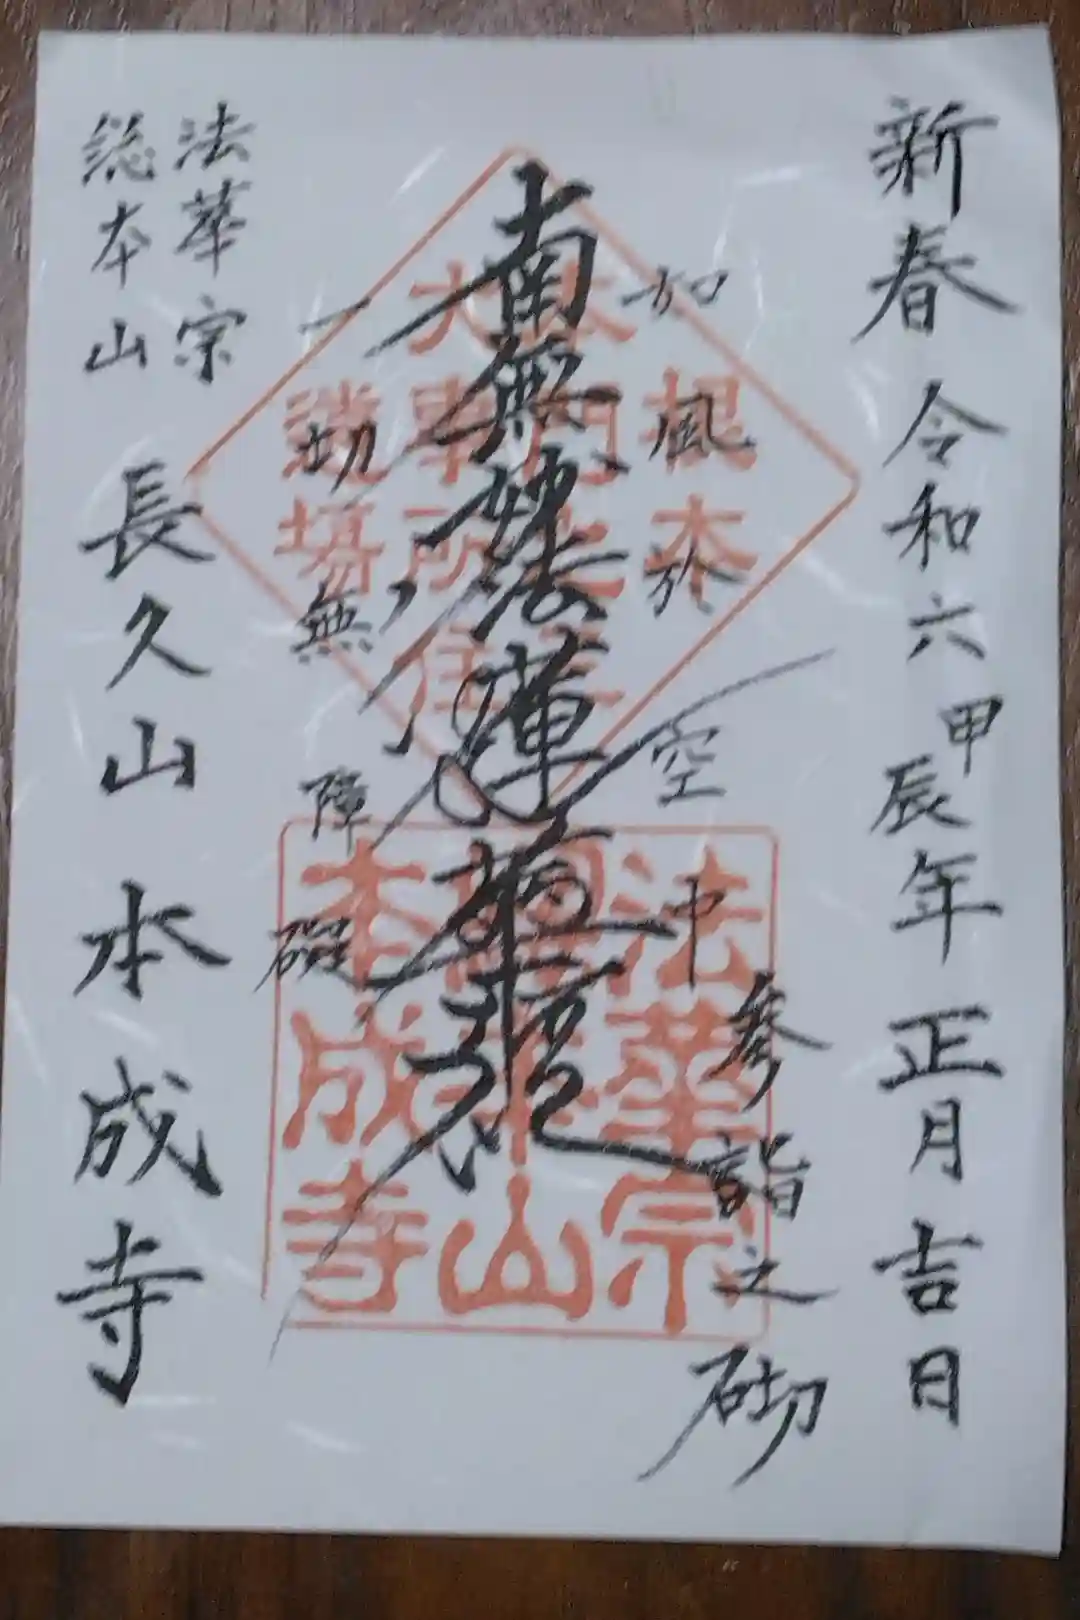 新春 令和六甲辰年 正月吉日
如風於空中
参詣之砌
南無妙法蓮華経
一切無障礙
法華宗
総本山
長久山 本成寺
根本
本門三
大事所住
戒場
法華宗
本成寺